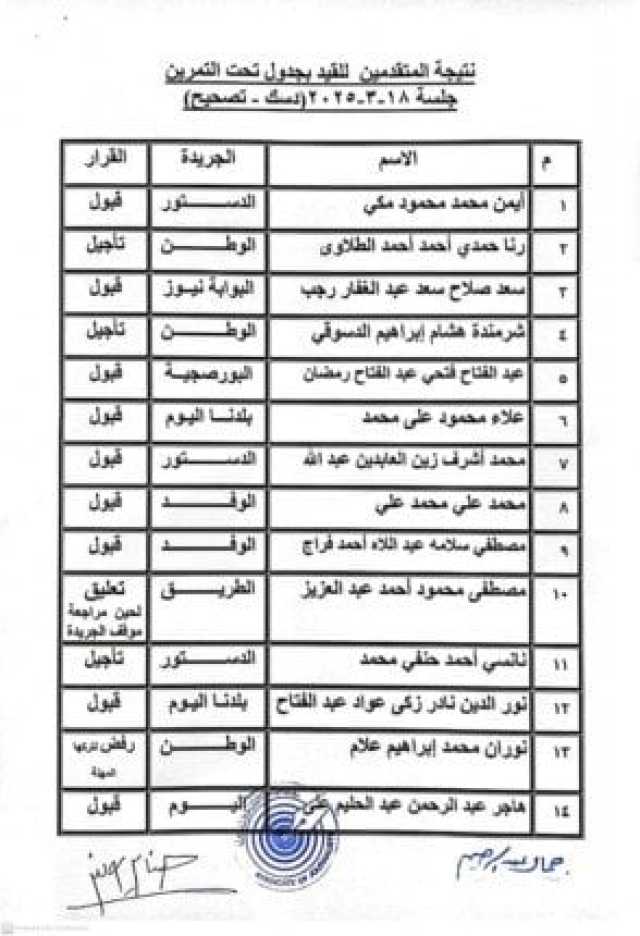 نتيجة المتقدمين للقيد بجدول تحت التمرين
جلسة ١٨-٣-٢٠٢٥(دسك - تصحيح)
م الاسم الجريدة القرار
١ أيمن محمد محمود مكي الدستور قبول
٢ رنا حمدي أحمد أحمد الطلاوى الوطن تأجيل
٣ سعد صلاح سعد عبد الغفار رجب البوابة نيوز قبول
٤ شرمندة هشام إبراهيم الدسوقي الوطن تأجيل
٥ عبد الفتاح فتحي عبد الفتاح رمضان البورصجية قبول
٦ علاء محمود على محمد بلدنا اليوم قبول
٧ محمد أشرف زين العابدين عبد الله الدستور قبول
٨ محمد علي محمد علي الوفد قبول
٩ مصطفي سلامه عبد اللاه أحمد فراج الوفد قبول
١٠ مصطفى محمود أحمد عبد العزيز الطريق تعليق
لحين مراجعة
موقف الجريدة
١١ نانسي أحمد حنفي محمد الدستور تأجيل
١٢ نور الدين نادر زكى عواد عبد الفتاح بلدنا اليوم قبول
١٣ نوران محمد إبراهيم علام الوطن رفض
المهلة
١٤ هاجر عبد الرحمن عبد الحليم على اليوم قبول
SYNDICATE OF